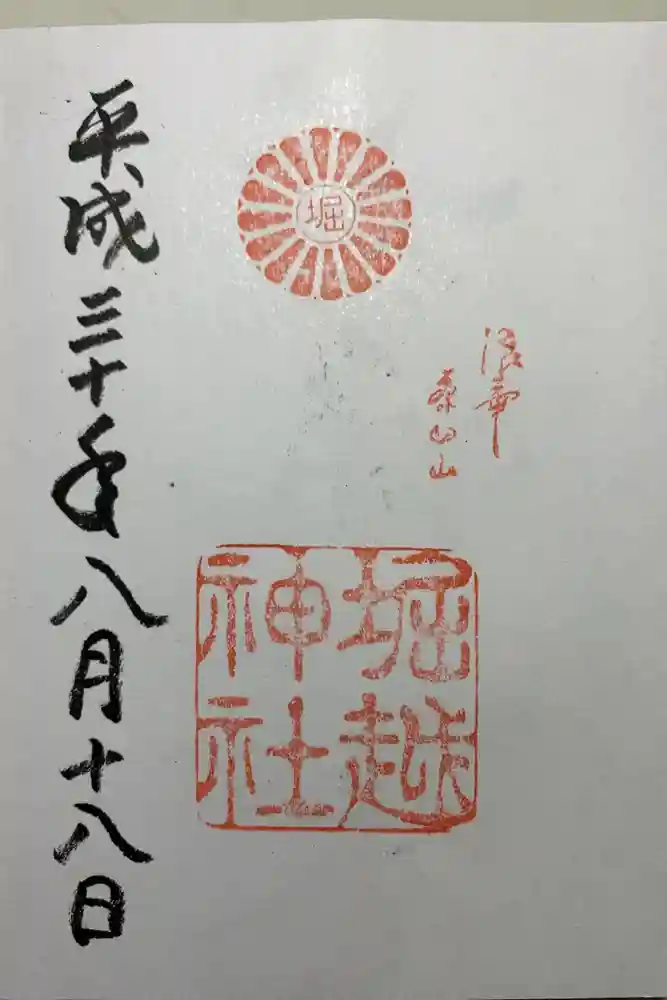 浪華
茶臼山
堀
堀越
神社
平成三十年八月十八日